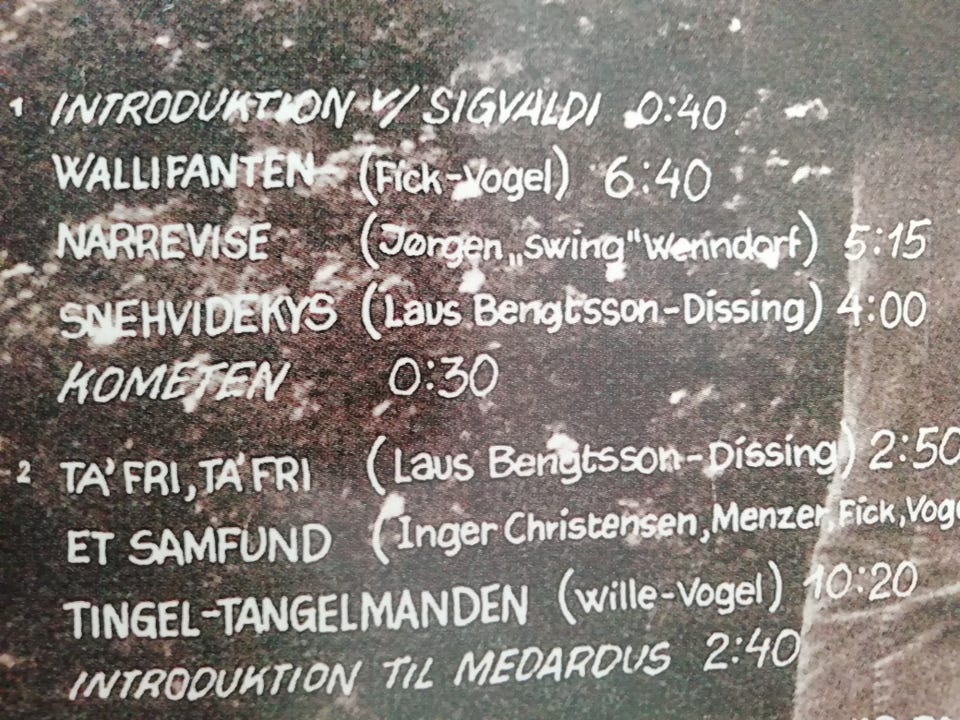 1 INTRODUKTION V/ SIGVALDI 0:40
WALLIFANTEN (Fick-Vogel) 6:40
NARREVISE (Jørgen „swing" Wenndorf) 5:15
SNEHVIDEKYS (Laus Bengtsson-Dissing) 4:00
KOMETEN 0:30
2 TA' FRI, TA' FRI (Laus Bengtsson-Dissing) 2:50
ET SAMFUND (Inger Christensen, Menzer, Fick, Voge
TINGEL-TANGELMANDEN (wille-Vogel) 10:20
INTRODUKTION TIL MEDARDUS 2:40